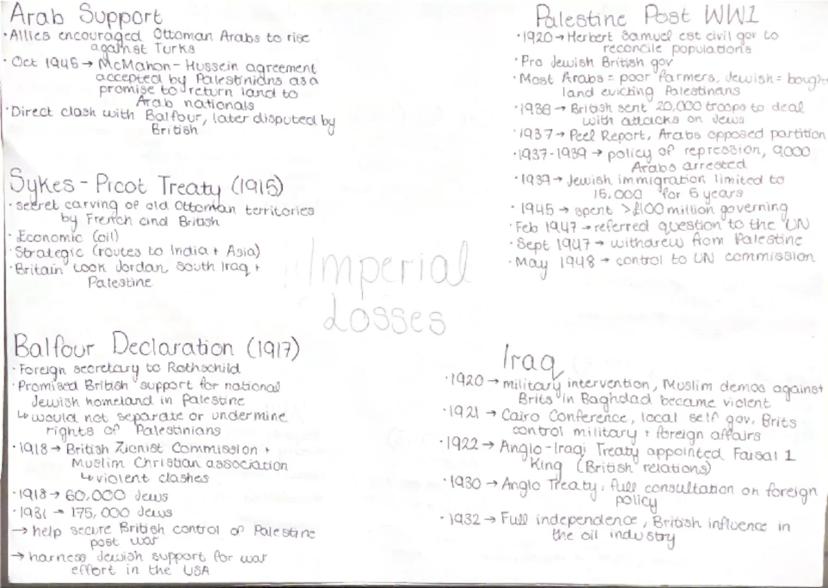 Arab Support
· Allies encouraged Ottoman Arabs to rise
against Turks
· Oct 1945 → McMahon-Hussein agreement
accepted by Palestinians as a
promise to return land to
Arab nationals
· Direct clash with Balfour, later disputed by
British
Sykes-Picot Treaty (1915)
· secret carving of old Ottoman territories
by French and British
· Economic (oil)
· Strategic (routes to India + Asia)
· Britain took Jordan, South Iraq +
Palestine
Balfour Declaration (1917)
· Foreign secretary to Rothschild
· Promised British support for national
Jewish homeland in Palestine
↳ would not separate or undermine
rights of Palestinians
· 1918 → British Zionist Commission +
Muslim Christian association
↳ violent clashes
· 1918 → 60,000 Jews
· 1931 → 175,000 Jews
→ help secure British control of Palestine
post war
→ harness Jewish support for war
effort in the USA
Imperial
Losses
Palestine Post WW1
· 1920 → Herbert Samuel est civil gov to
reconcile populations
· Pro Jewish British gov
· Most Arabs = poor farmers, Jewish = bought
land evicting Palestinans
· 1936 → British sent 20,000 troops to deal
with attacks on Jews
· 1937 → Peel Report, Arabs opposed partition
· 1937-1939 → policy of repression, 9,000
Arabs arrested
· 1939 → Jewish immigration limited to
15,000 for 5 years
· 1945 → spent >£100 million governing
· Feb 1947 → referred question to the UN
· Sept 1947 → withdrew from Palestine
· May 1948 → control to UN commission
Iraq
· 1920 → military intervention, Muslim demos against
Brits in Baghdad became violent
· 1921 → Cairo Conference, local self gov, Brits
control military + foreign affairs
· 1922 → Anglo-Iraqi Treaty appointed Faisal 1
King (British relations)
· 1930 → Anglo Treaty, full consultation on foreign
policy
· 1932 → Full independence, British influence in
the oil industry